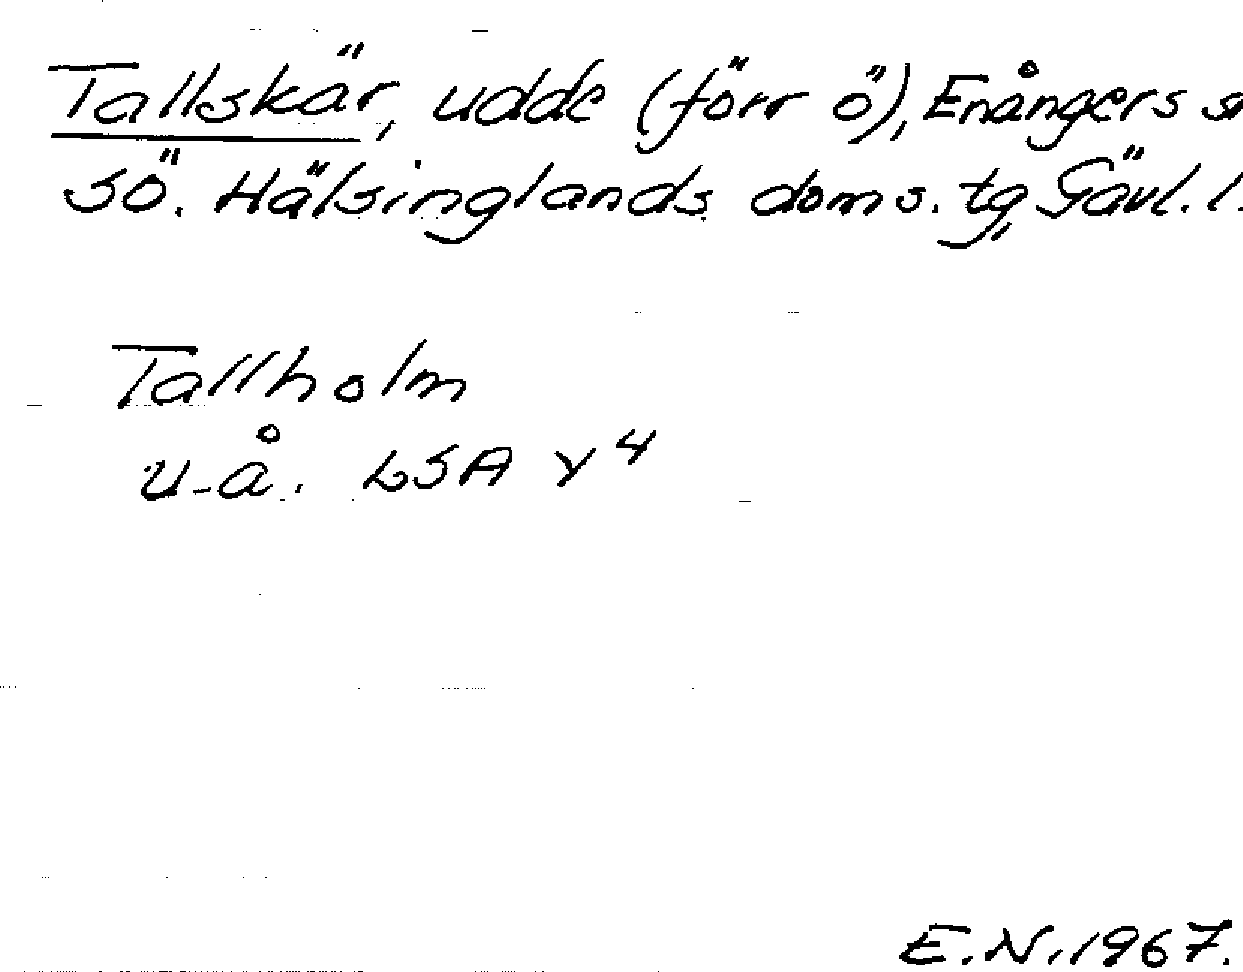 Tallskär, udde (förr ö), Enångers sn
SÖ. Hälsinglands doms. tg, Gävl. l.
Tallholm
u.å. LSA Y4
E.N. 1967.